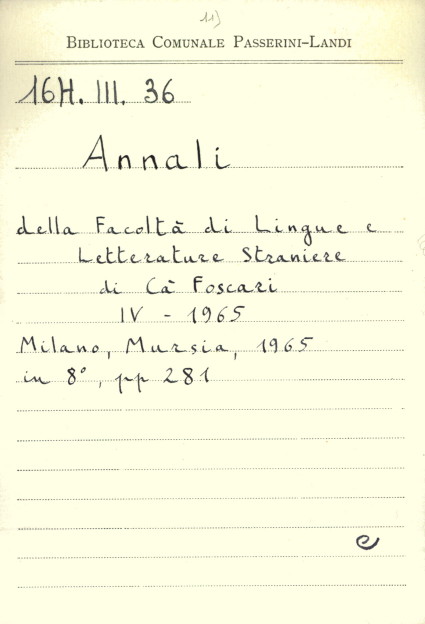 11)
BIBLIOTECA COMUNALE PASSERINI-LANDI
16H. III. 36
Annali
della Facoltà di Lingue e
Letterature Straniere
di Cà Foscari
IV - 1965
Milano, Mursia, 1965
in 8°, pp 281
e